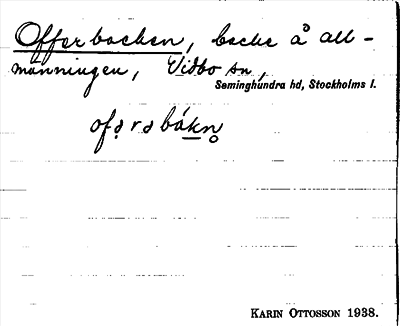 Offerbacken, backe å all-
männingen, Vidbo sn,
Seminghundra hd, Stockholms l.
ofərəbákn̥
KARIN OTTOSSON 1938.